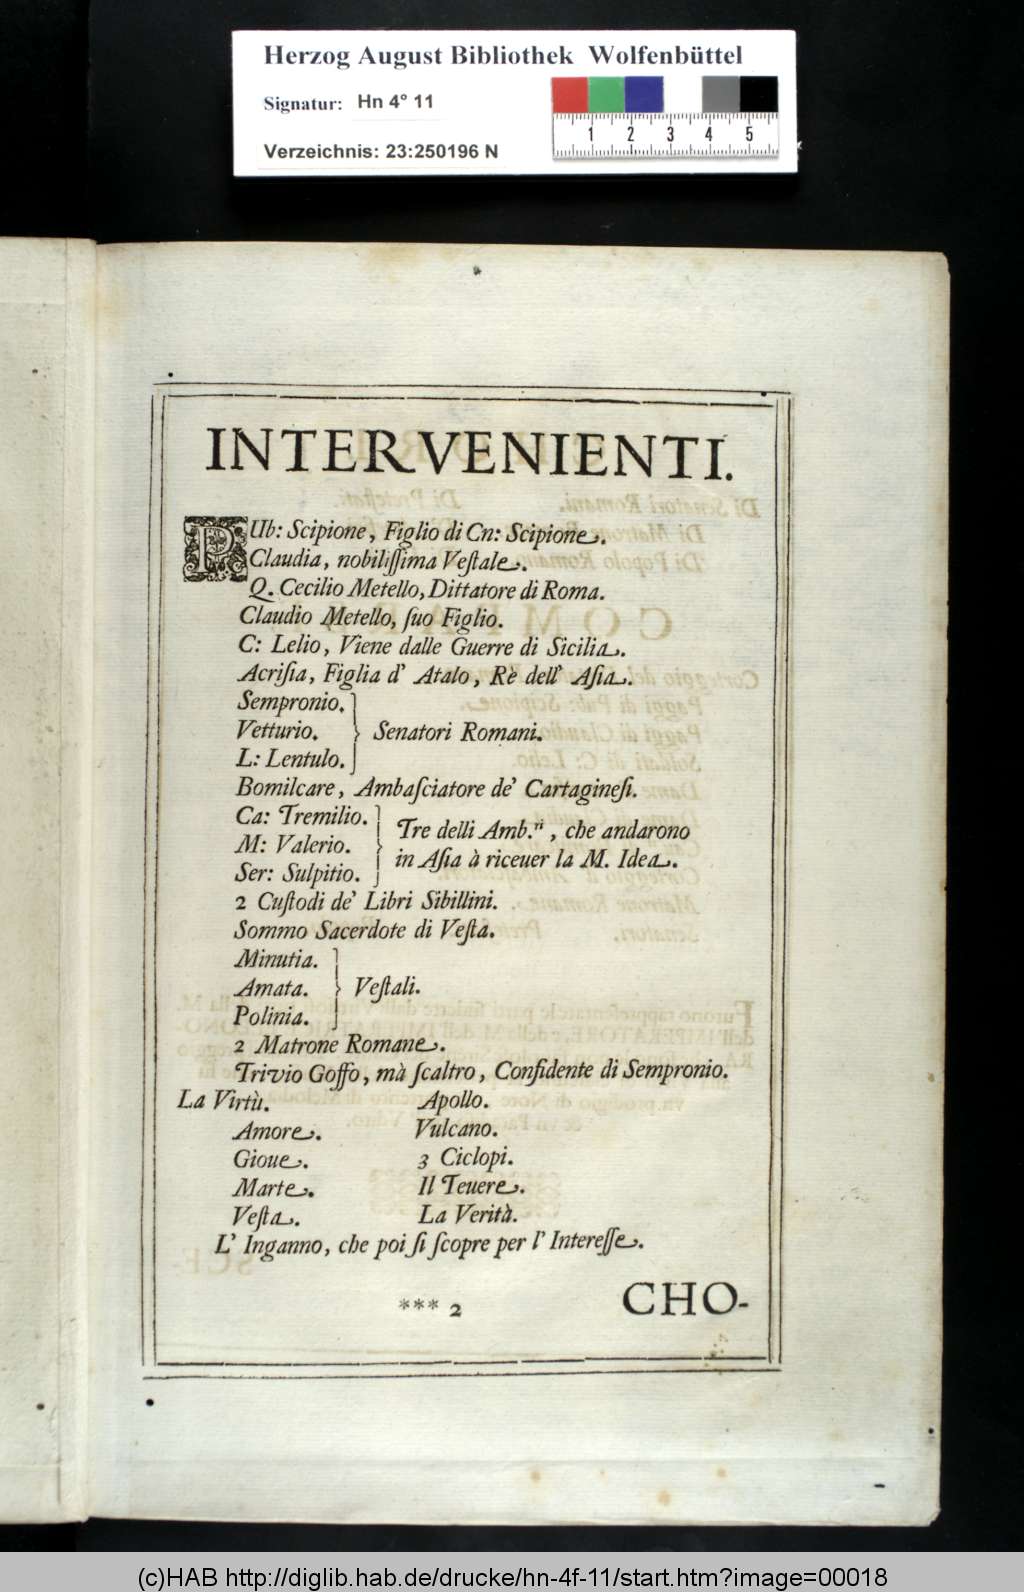 Herzog August Bibliothek Wolfenbüttel
Signatur: Hn 4° 11
Verzeichnis: 23:250196 N
1 2 3 4 5
INTERVENIENTI.
PUb: Scipione, Figlio di Cn: Scipione.
Claudia, nobiliſſima Veſtale.
Q. Cecilio Metello, Dittatore di Roma.
Claudio Metello, ſuo Figlio.
C: Lelio, Viene dalle Guerre di Sicilia.
Acriſia, Figlia d' Atalo, Rè dell' Aſia.
Sempronio.
Vetturio. } Senatori Romani.
L: Lentulo.
Bomilcare, Ambaſciatore de' Cartagineſi.
Ca: Tremilio.
M: Valerio.
Ser: Sulpitio.
} Tre delli Amb.ri, che andarono
in Aſia à riceuer la M. Idea.
2 Cuſtodi de' Libri Sibillini.
Sommo Sacerdote di Veſta.
Minutia.
Amata. } Veſtali.
Polinia.
2 Matrone Romane.
Trivio Goffo, mà ſcaltro, Confidente di Sempronio.
La Virtù. Apollo.
Amore. Vulcano.
Gioue. 3 Ciclopi.
Marte. Il Teuere.
Veſta. La Verità.
L' Inganno, che poi ſi ſcopre per l' Intereſſe.
*** 2 CHO-
(c)HAB http://diglib.hab.de/drucke/hn-4f-11/start.htm?image=00018